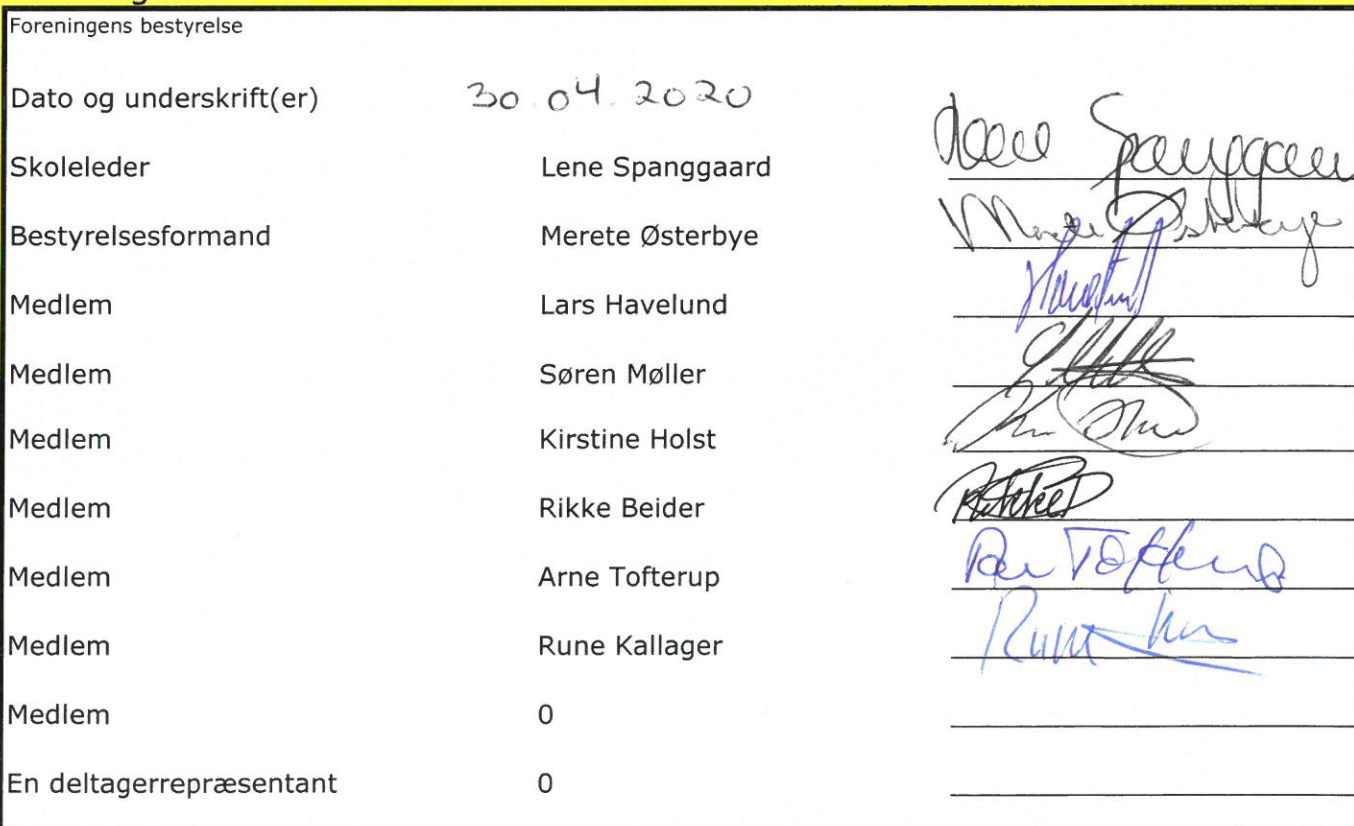 Foreningens bestyrelse
Dato og underskrift(er) 30.04.2020
Skoleleder Lene Spanggaard Lene Spanggaard
Bestyrelsesformand Merete Østerbye Merete Østerbye
Medlem Lars Havelund
Medlem Søren Møller
Medlem Kirstine Holst
Medlem Rikke Beider Rikke
Medlem Arne Tofterup
Medlem Rune Kallager Rune
Medlem 0
En deltagerrepræsentant 0